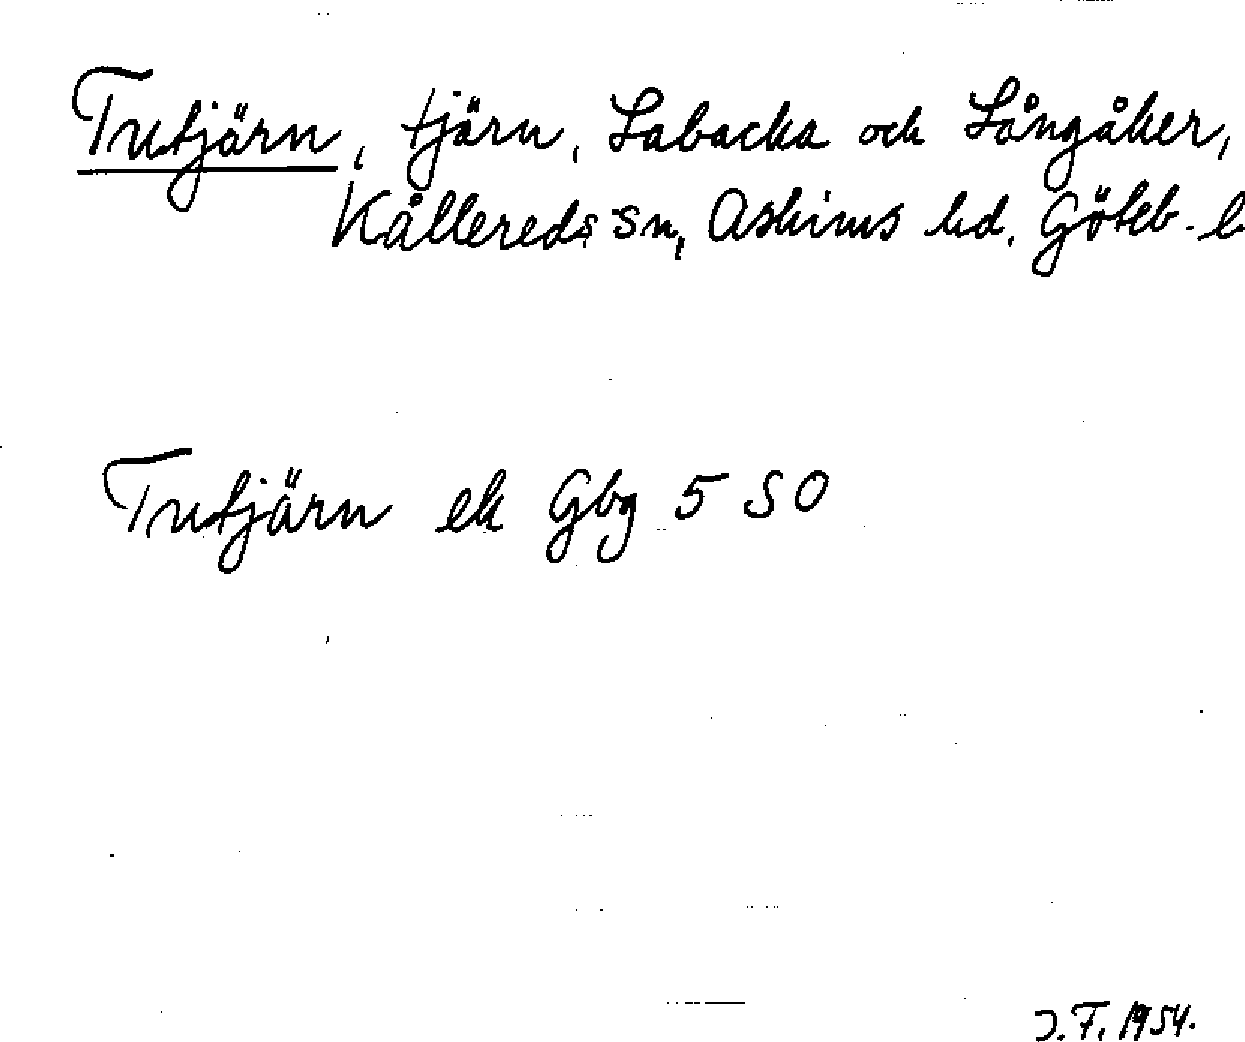 Trutjärn, tjärn, Labacka och Långåker,
Kållereds sn, Askims hd. Göteb. l
Trutjärn ek Gbg 5 SO
J.F. 1954.